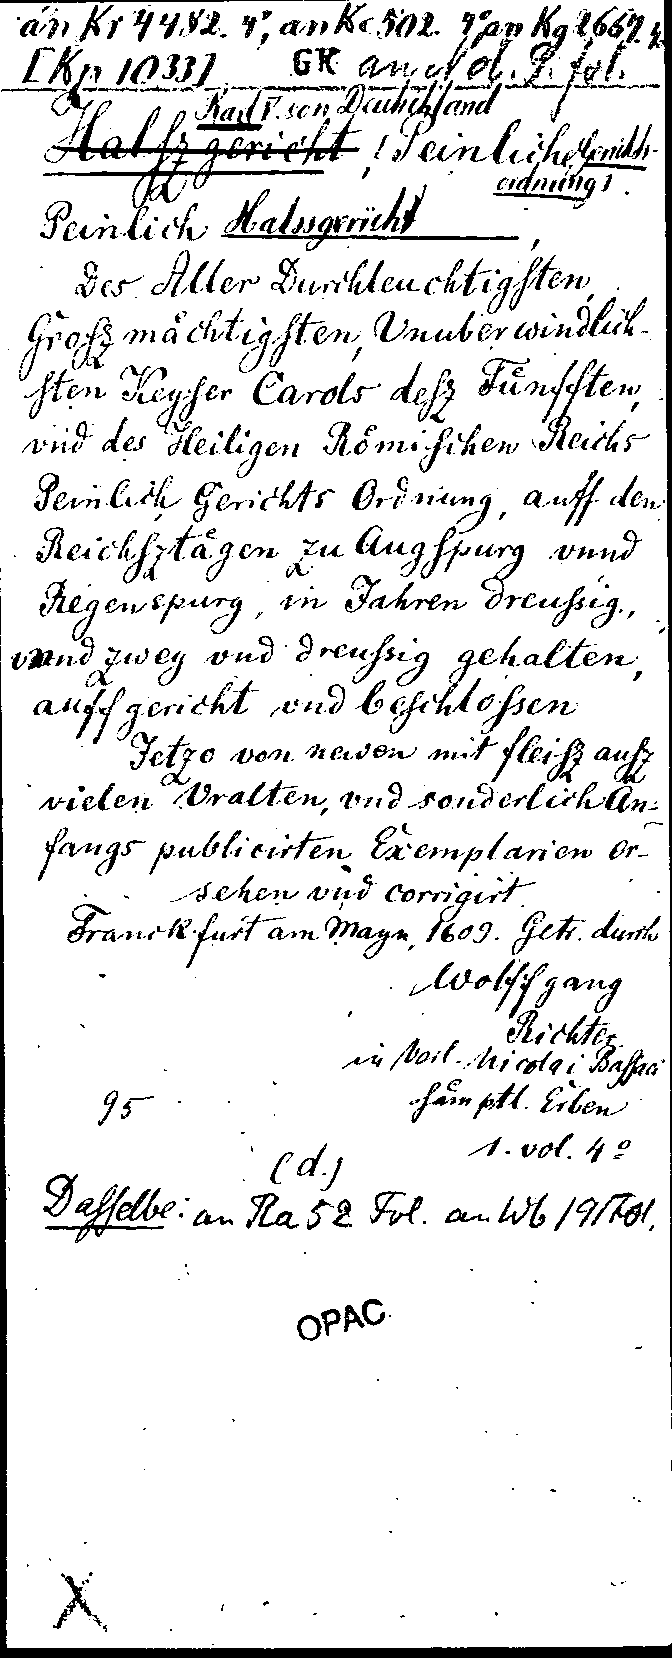 an Kr 4482. 4°, an Kc 502. 4° an Kg 2667. 4.
[Kp 1033] GK an d. P. fol.
Karl V. von Deutschland
Halszgericht, ! Peinliche Gerichts-
ordnung).
Peinlich Halssgericht,
Des Aller Durchleuchtigsten,
Grosz mächtigsten, Unuberwindlich-
sten Keyser Carols desz Fünfften,
vnd des Heiligen Römischen Reichs
Peinlich Gerichts Ordnung, auff den
Reichsztägen zu Augspurg vnnd
Regenspurg, in Jahren dreussig,
vnnd zwey vnd dreussig gehalten,
auffgericht vnd beschlossen
Jetzo von newen mit fleisz ausz
vielen Vralten, vnd sonderlich An-
fangs publicirten Exemplarien er-
sehen vnd corrigirt.
Franckfurt am Mayn, 1609. Getr. durch
Wolffgang
Richter
in Verl. Nicolai Bassaei
sämptl. Erben
95
1. vol. 4°
(d.)
Dasselbe: an Ra 52 Fol. an Wb 191 Fol.
OPAC
X